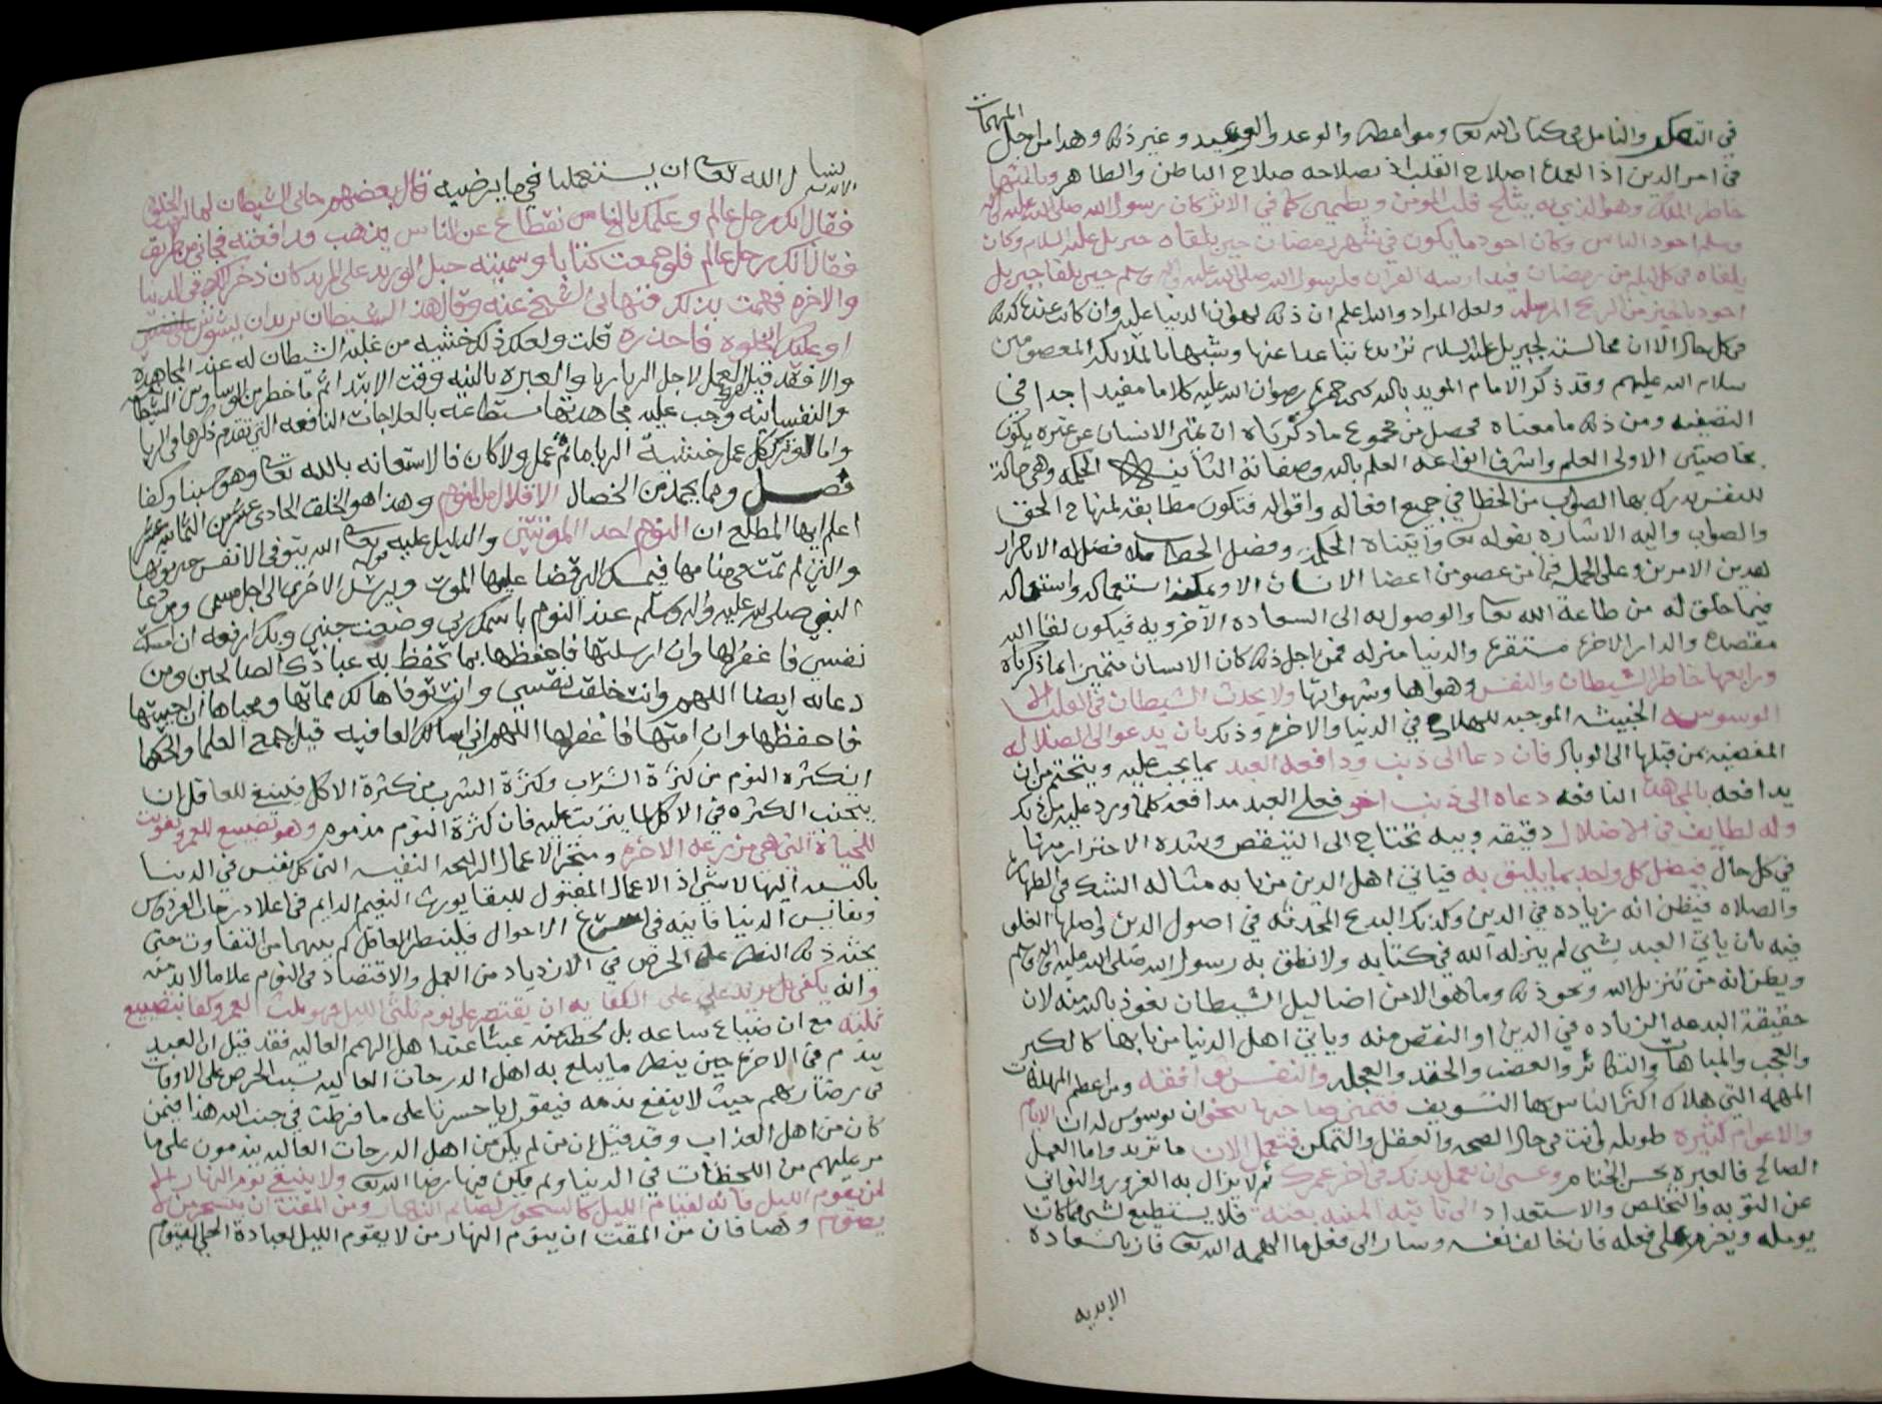 المهمات
في التفكر والتامل في كتاب الله تعا ومواعظه والوعد والوعيد وغير ذلك وهذا من اجل
في امر الدين اذ العمدة اصلاح القلب اذ بصلاحه صلاح الباطن والظاهر وثالثها
خاطر الملك وهو الذي به يثلج قلب المومن ويطمئن كما في الاثر كان رسول الله صلى الله عليه واله
وسلم اجود الناس وكان اجود ما يكون في شهر رمضان حين يلقاه جبريل عليه السلام وكان
يلقاه في كل ليله من رمضان فيدارسه القران فلرسول الله صلى الله عليه واله وسلم حين يلقا جبريل
اجود بالخير من الريح المرسله ولعل المراد والله اعلم ان ذلك لهوان الدنيا عليه وان كانت عنده كذلك
في كل حال الا ان مجالسة لجبريل عليه السلام تزيده تباعدا عنها وشبها بالملائكه المعصومين
سلام الله عليهم وقد ذكر الامام المويد بالله يحيى بن حمزه رضوان الله عليه كلاما مفيدا جدا في
التصفيه ومن ذلك ما معناه تحصل من مجموع ما ذكرناه ان تميز الانسان عن غيره يكون
بخاصيتين الاولى العلم واشرف انواعه العلم بالله وصفاته الثانيه الحكمه وهي حالة
للنفس يدرك بها الصواب من الخطا في جميع افعاله واقواله فتكون مطابقه لمنهاج الحق
والصواب واليه الاشاره بقوله تعا واتيناه الحكمة وفصل الخطاب فلا فضل له الا باحراز
هذين الامرين وعلى الجمله فما من عضو من اعضا الانسان الا ويمكنه استعماله واستعماله
فيما خلق له من طاعة الله تعا والوصول به الى السعاده الاخرويه فيكون لقا الله
مقصده والدار الاخره مستقره والدنيا منزله فمن اجل ذلك كان الانسان متميزا بما ذكرناه
ورابعها خاطر الشيطان والنفس وهواها وشهواتها ولا يحدث الشيطان في القلب الا
الوسوسه الخبيثه الموجبه للهلاك في الدنيا والاخره وذكر بان يدعو الى الضلاله
المفضيه بمن قبلها الى الوبال فان دعا الى ذنب ودافعه العبد بما يجب عليه ويتحتم من ان
يدافعه بالمجاهدة النافعه دعاه الى ذنب اخر فعلى العبد مدافعه كلما ورد عليه من ذلك
وله لطايف في الاضلال دقيقه وبيه تحتاج الى التيقض وشدة الاحتراز منها
في كل حال فيضل كل واحد بما يليق به فياتي اهل الدين من بابه مثاله الشك في الطهاره
والصلاه فيظن انه زياده في الدين وكذلك البدع المحدثه في اصول الدين واصلها الغلو
فيه بان ياتي العبد بشي لم ينزله الله في كتابه ولا نطق به رسول الله صلى الله عليه واله وسلم
ويظن انه من تنزيل الله ونحو ذلك وما هو الا من اضاليل الشيطان نعوذ بالله منه لان
حقيقة البدعه الزياده في الدين او النقص منه وياتي اهل الدنيا من بابها كالكبر
والعجب والمباهات والتكاثر والغضب والحقد والعجله والنفس توافقه ومن اعظم المهلكات
المهمه التي هلاك اكثر الناس بها التسويف فتميز صاحبها بنحو ان يوسوس له ان الايام
والاعوام كثيره طويله وانت في حال الصحه والعقل والتمكن فتعمل الان ما تريد واما العمل
الصالح فالعبره بحسن الختام وعسى ان تعمل بذلك في اخر عمرك ثم لا يزال به الغرور والتواني
عن التوبه والتخلص والاستعداد الى تاتيه المنيه بغتة فلا يستطيع لشي مما كان
يومله ويعزم على فعله فان خالف نفسه وسار الى فعل ما الهمه الله تعا فاز بالسعاده
الابديه
الابديه
نسال الله تعا ان يستعملنا في ما يرضيه قال بعضهم جاني الشيطان لما
فقال انك رجل عالم وعلمك بالناس نقطاع عن الناس يذهب فدافعته فجاني من طريق
فقال انك رجل عالم فلو جمعت كتابا وسميته حبل الوريد على المريد كان ذخرا لك في الدنيا
والاخره فهممت بذلك فنهاني الشيخ عنه وقال هذا الشيطان يريد ان يشوش
او عليك الخلوه فاحذره قلت ولعل ذلك خشيه من غلبة الشيطان له عند المجاهده
والا فقد قيل العمل لاجل الريا ريا والعبره بالنيه وقت الابتدا ثم ما خطر من الوساوس الشيطانيه
والنفسانيه وجب عليه مجاهدتها مستطاعه بالعلاجات النافعه التي تقدم ذكرها في الريا
واما لو ترك كل عمل خشية الريا ما ثم عمل ولا كان فالاستعانه بالله تعا وهو حسبنا وكفا
فصل ومما يحمد من الخصال الاقلال من النوم وهذا هو الخلق الحادي عشر من الثمانيه عشر
اعلم ايها المطلع ان النوم احد الموتتين والدليل عليه قوله تعا الله يتوفى الانفس حين موتها
والتي لم تمت في منامها فيمسك التي قضا عليها الموت ويرسل الاخرى الى اجل مسمى ومن دعا
النبي صلى الله عليه واله وسلم عند النوم باسمك ربي وضعت جنبي وبك ارفعه ان امسكت
نفسي فاغفر لها وان ارسلتها فاحفظها بما تحفظ به عبادك الصالحين ومن
دعائه ايضا اللهم وانت خلقت نفسي وانت توفاها لك مماتها ومحياها ان احييتها
فاحفظها وان امتها فاغفر لها اللهم اني اسالك العافيه قيل اجمع العلما والحكما
ان كثرة النوم من كثرة الشراب وكثرة الشرب من كثرة الاكل فينبغي للعاقل ان
يتجنب الكثره في الاكل لما يترتب عليه فان كثرة النوم مذموم وهو تضييع للعمر تفويت
للحياة التي هي مزرعه الاخره ومتجر الاعمال الرابحه النفيسه التي كل نفيس في الدنيا
بالنسبه اليها لاشي اذ الاعمال المقبول للبقا يورث النعيم الدايم في اعلا درجات الفردوس
ونفايس الدنيا فانيه في اسرع الاحوال فلينظر العاقل كم بينهما من التفاوت حتى
يحثه ذلك النظر على الحرص في الازدياد من العمل والاقتصاد في النوم على ما لا بد منه
وانه يكفي بل يزيد على الكفايه ان يقتصر على نوم ثلثي الليل فهو ثلث العمر وكفا بتضييع
ثلثه مع ان ضياع ساعه بل لحظه منه عبثا عند اهل الهمم العاليه فقد قيل ان العبد
يندم في الاخره حين ينظر ما يبلغ به اهل الدرجات العاليه بسبب الحرص على الاوقات
في رضا ربهم حيث لا ينفع ندمه فيقول يا حسرتا على ما فرطت في جنب الله هذا فيمن
كان من اهل العذاب وقد قيل ان من لم يكن من اهل الدرجات العاليه يندمون على ما
مر عليهم من اللحظات في الدنيا ولم يكن فيها رضا الله تعا ولا ينبغي نوم النهار الا
لمن يقوم الليل فانه لقيام الليل كالسحور لصيام النهار ومن المقت ان يتسحر من لا
يصوم وهكذا فان من المقت ان ينوم النهار من لا يقوم الليل لعبادة الحي القيوم